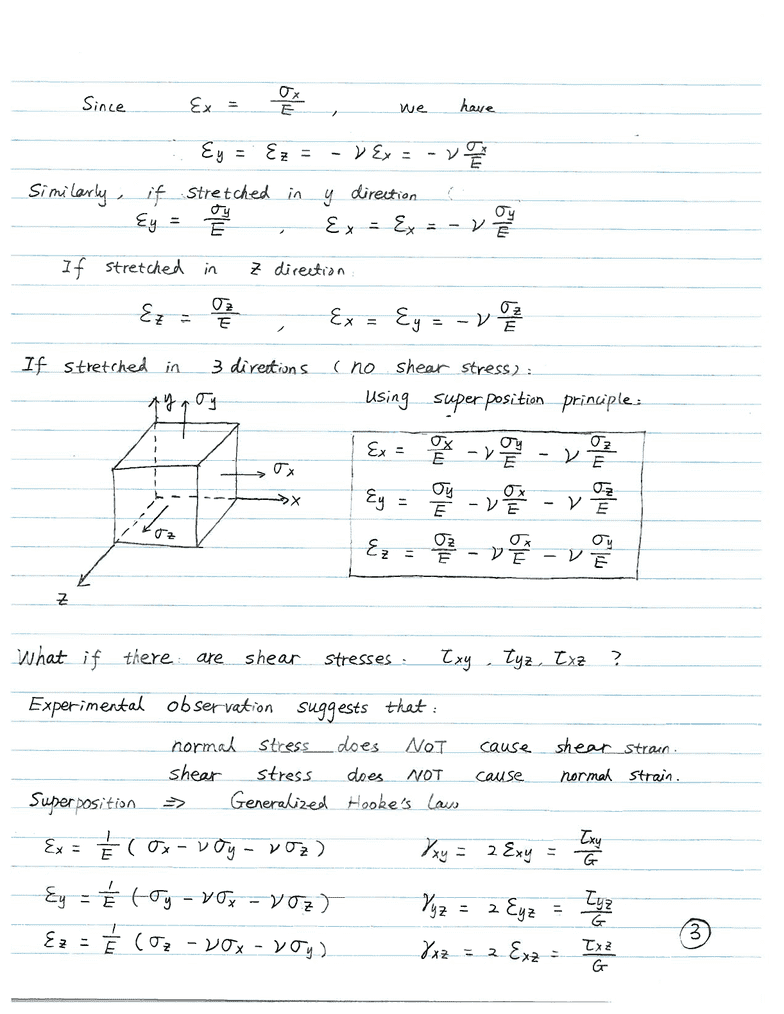 Since εx = σx/E , we have
εy = εz = - ν εx = - ν σx/E
Similarly, if stretched in y direction
εy = σy/E , εx = εx = - ν σy/E
If stretched in z direction.
εz = σz/E , εx = εy = -ν σz/E
If stretched in 3 directions (no shear stress):
y σy
σx
x
σz
z
Using superposition principle:
εx = σx/E - ν σy/E - ν σz/E
εy = σy/E - ν σx/E - ν σz/E
εz = σz/E - ν σx/E - ν σy/E
What if there are shear stresses. τxy , τyz, τxz ?
Experimental observation suggests that:
normal stress does NOT cause shear strain.
shear stress does NOT cause normal strain.
Superposition ⇒ Generalized Hooke's Law
εx = 1/E ( σx - νσy - νσz ) γxy = 2 εxy = τxy/G
εy = 1/E (-σy - νσx - νσz ) γyz = 2 εyz = τyz/G
εz = 1/E (σz - νσx - νσy ) γxz = 2 εxz = τxz/G
3